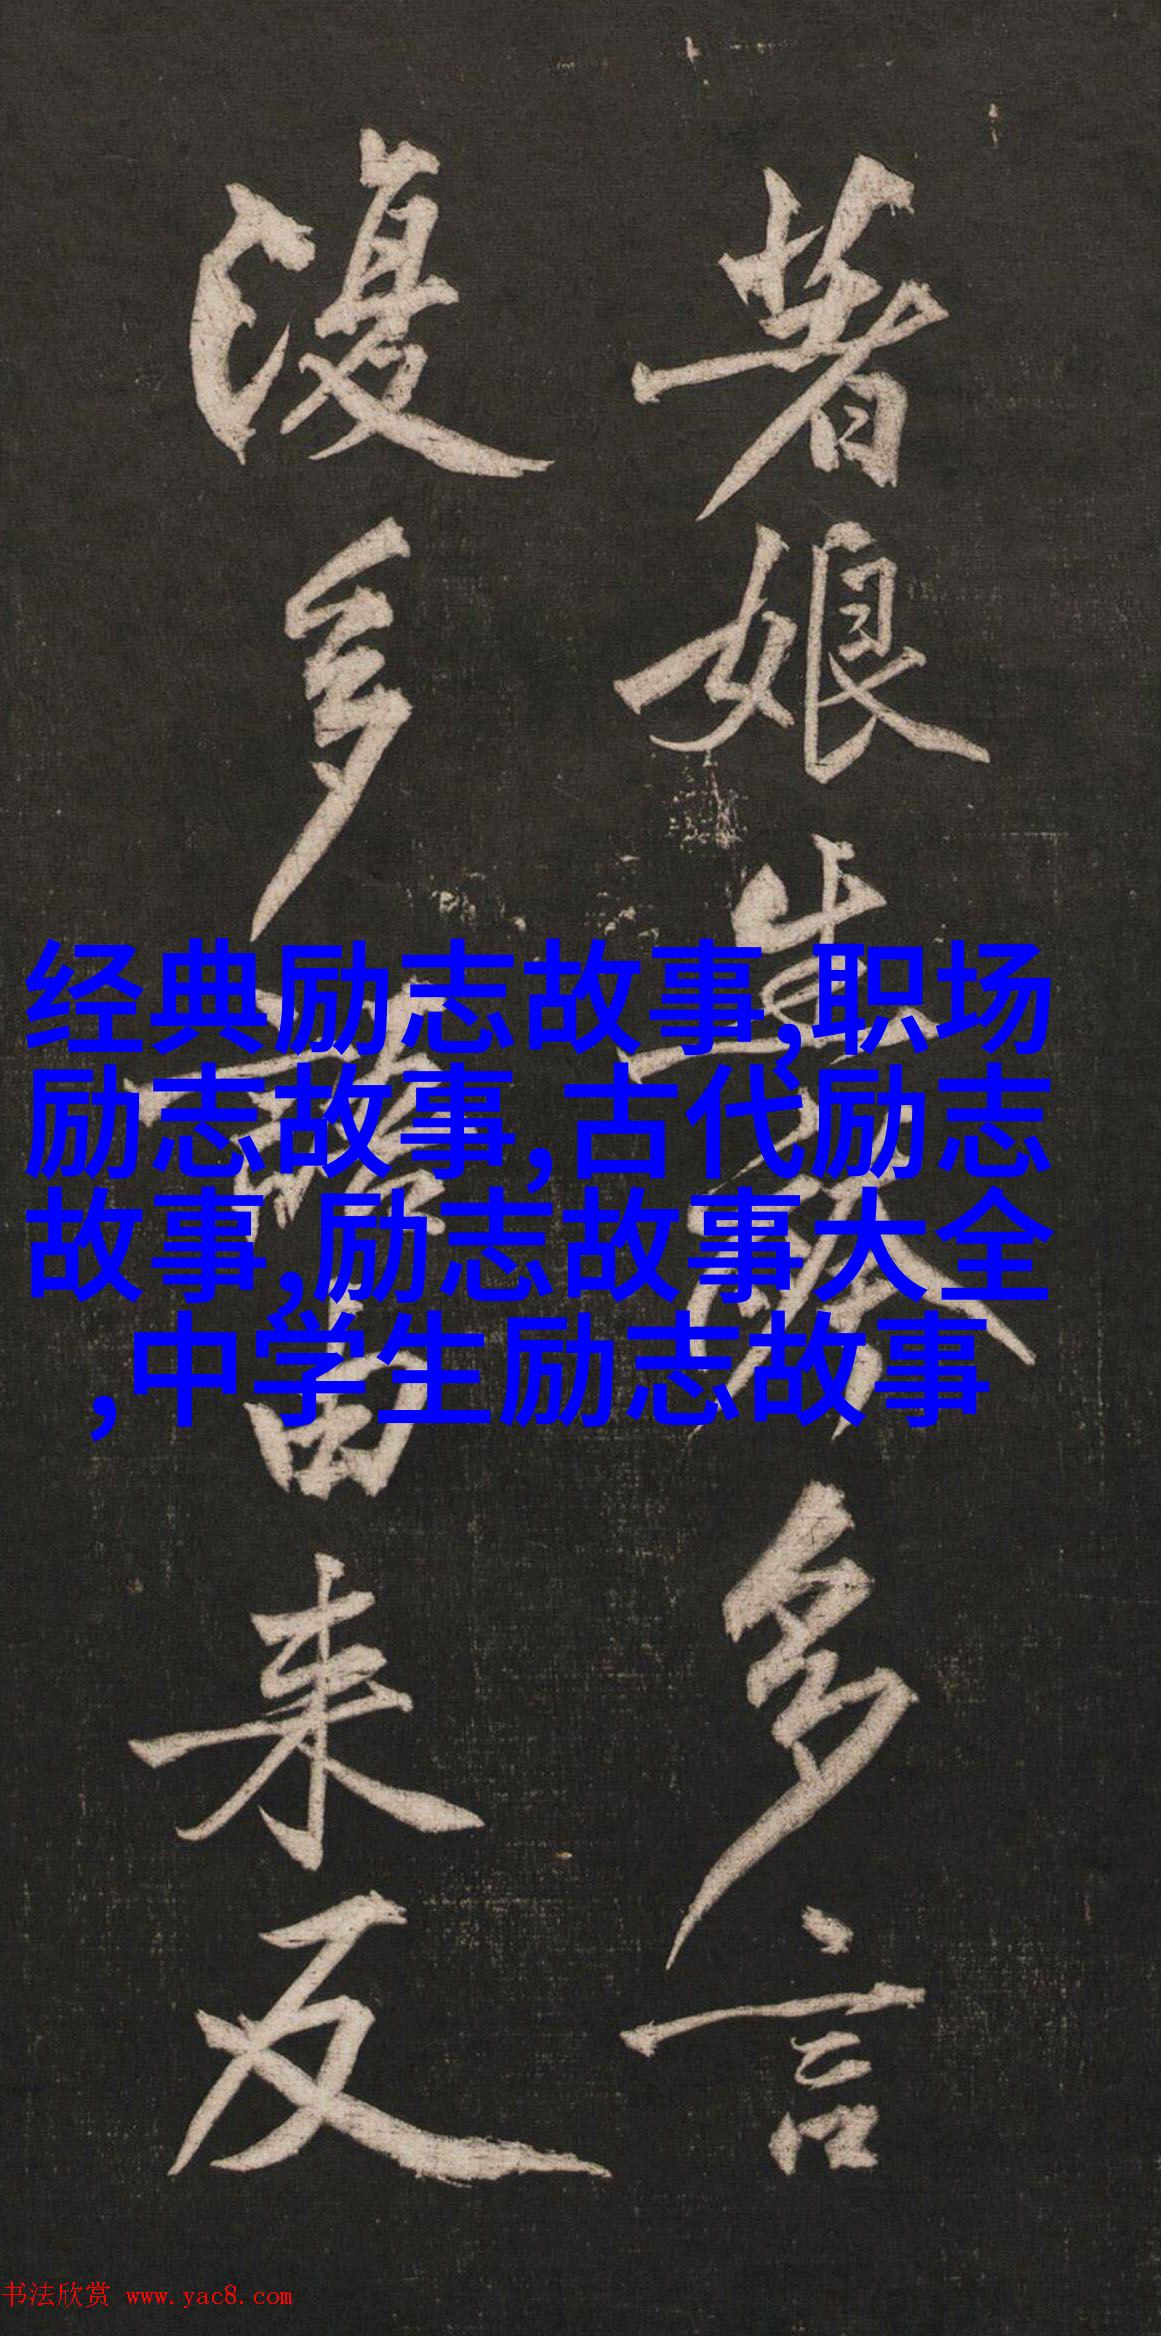 著娘多言
復多由来反
经典励志故事,职场
励志故事,古代励志
故事,励志故事大全
,中学生励志故事
书法欣赏 www.yac8.com